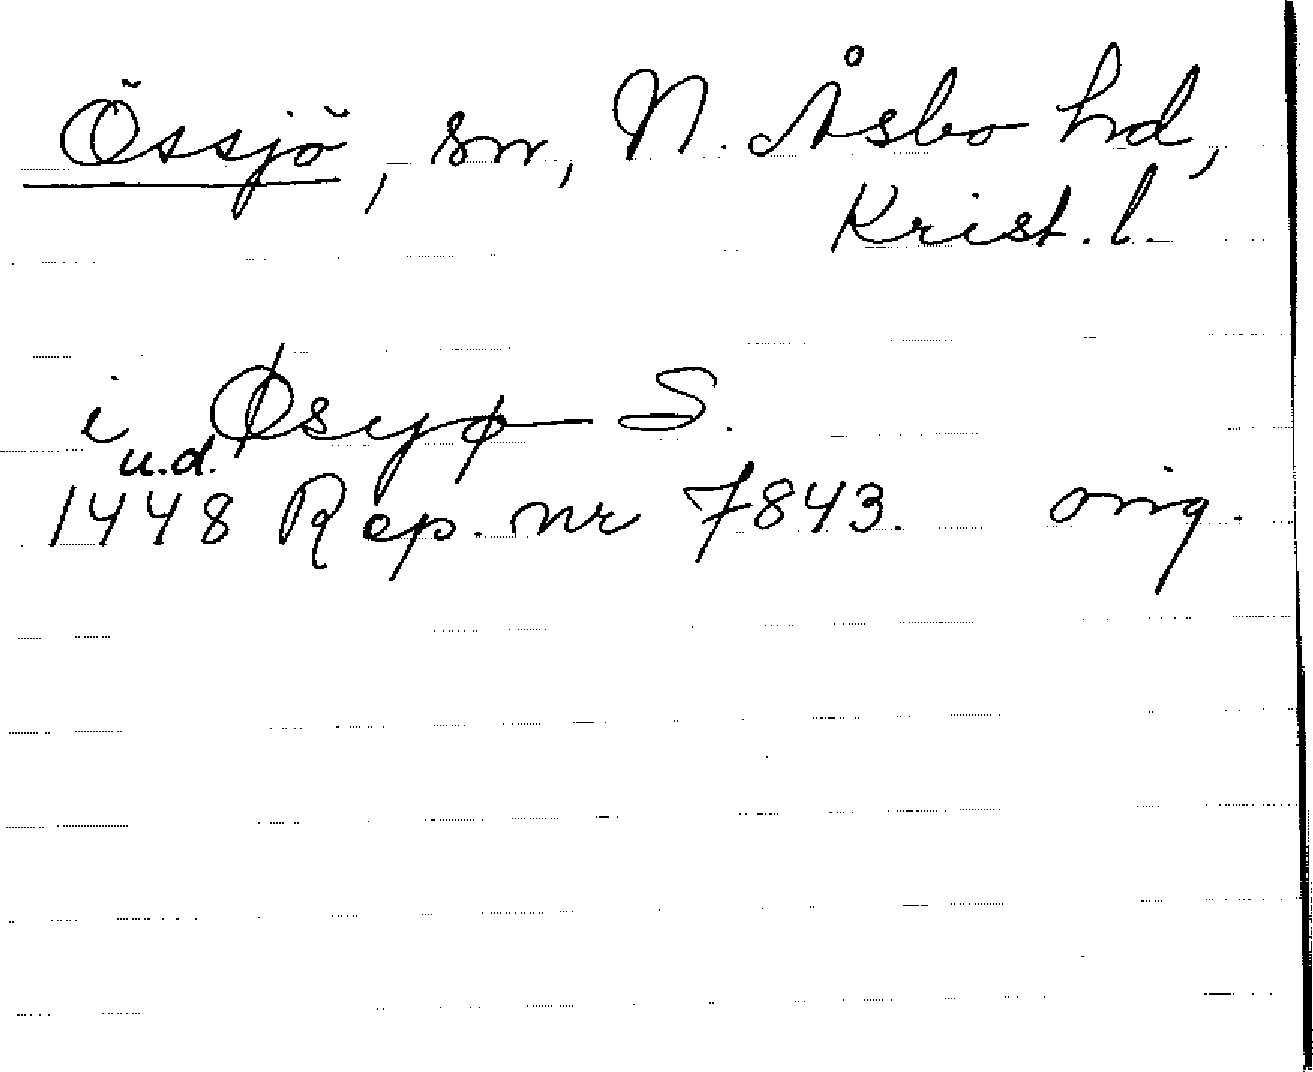 Össjö, sn, N. Åsbo hd,
Krist. l.
i Øsyø S.
u.d.
1448 Rep. nr 7843. orig.